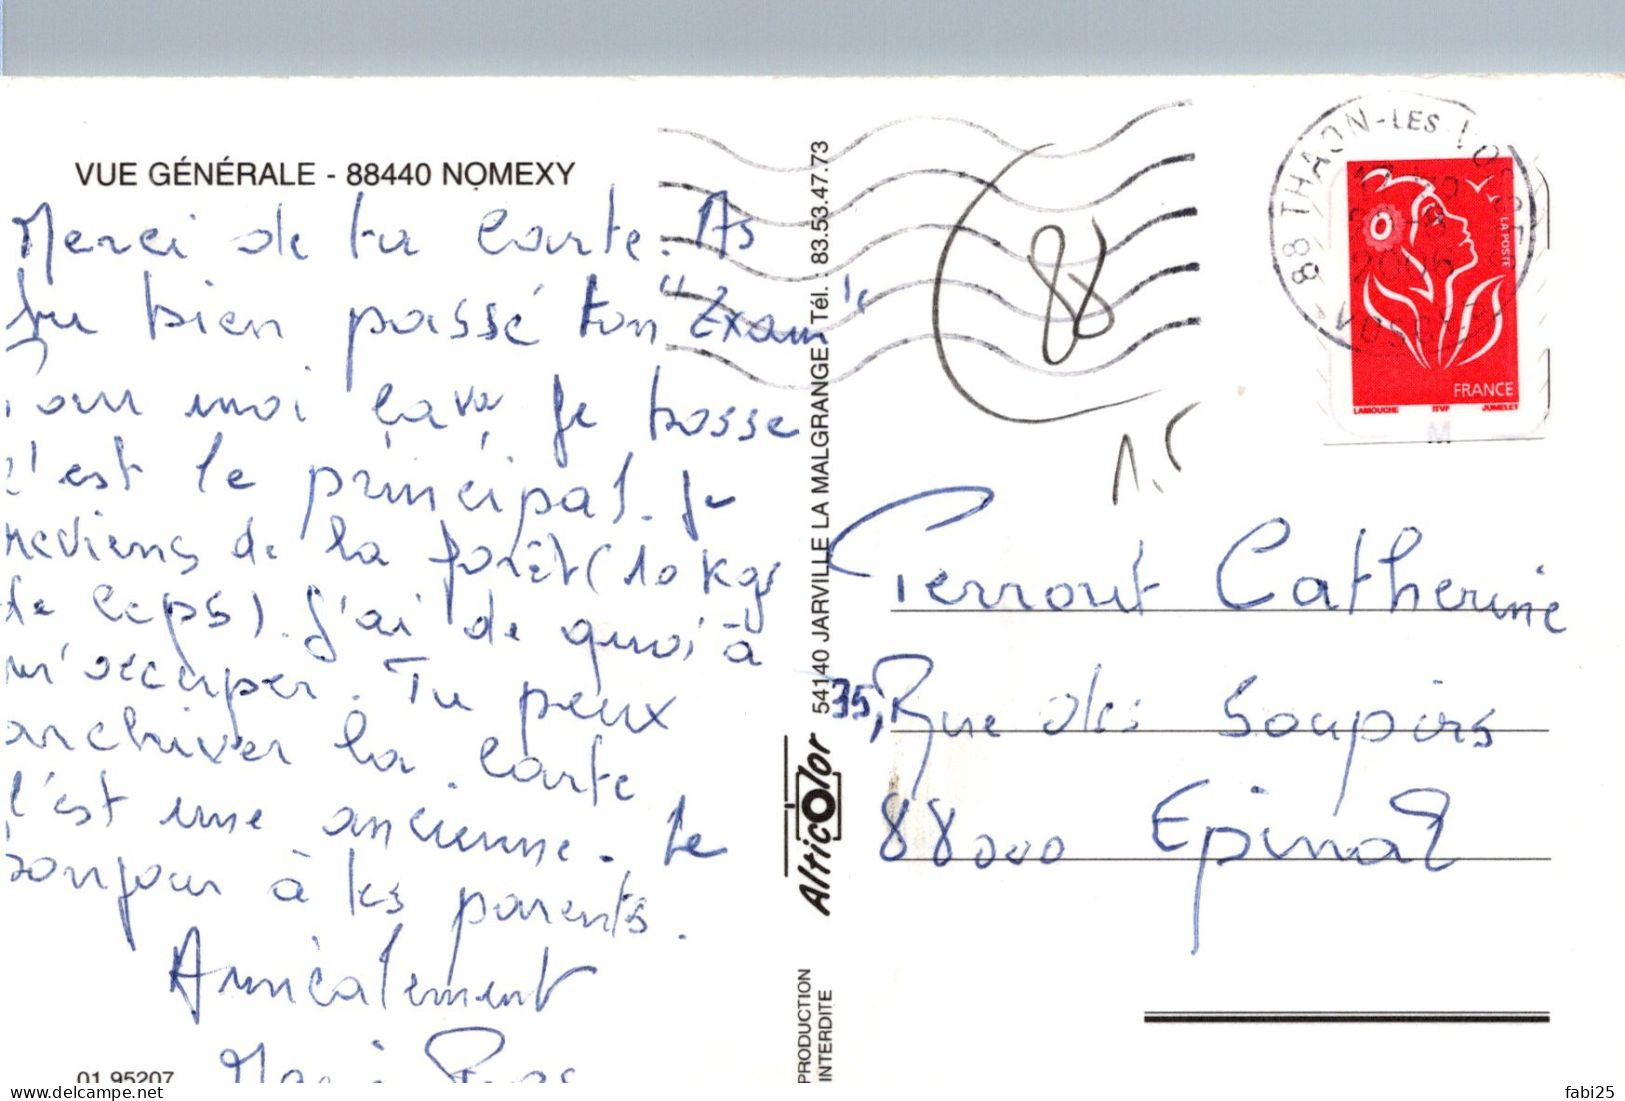 VUE GÉNÉRALE - 88440 NOMEXY
Merci de ta Carte. As
tu bien passé ton "Exam"
Pour moi ça va je bosse
c'est le principal. Je
reviens de la forêt (10 kgs
de ceps). J'ai de quoi à
m'occuper. Tu peux
archiver la carte
c'est une ancienne. Le
bonjour à tes parents.
Amicalement
01 95207
54140 JARVILLE LA MALGRANGE Tél. : 83.53.47.73
AlticOlor
PRODUCTION
INTERDITE
88
1.5
88 THAON-LES-VOSGES
2006
VOSGES
LA POSTE
FRANCE
LAMOUCHE ITVF JUMELET
M
Perrout Catherine
35, Rue des Soupirs
88000 Epinal
fabi25